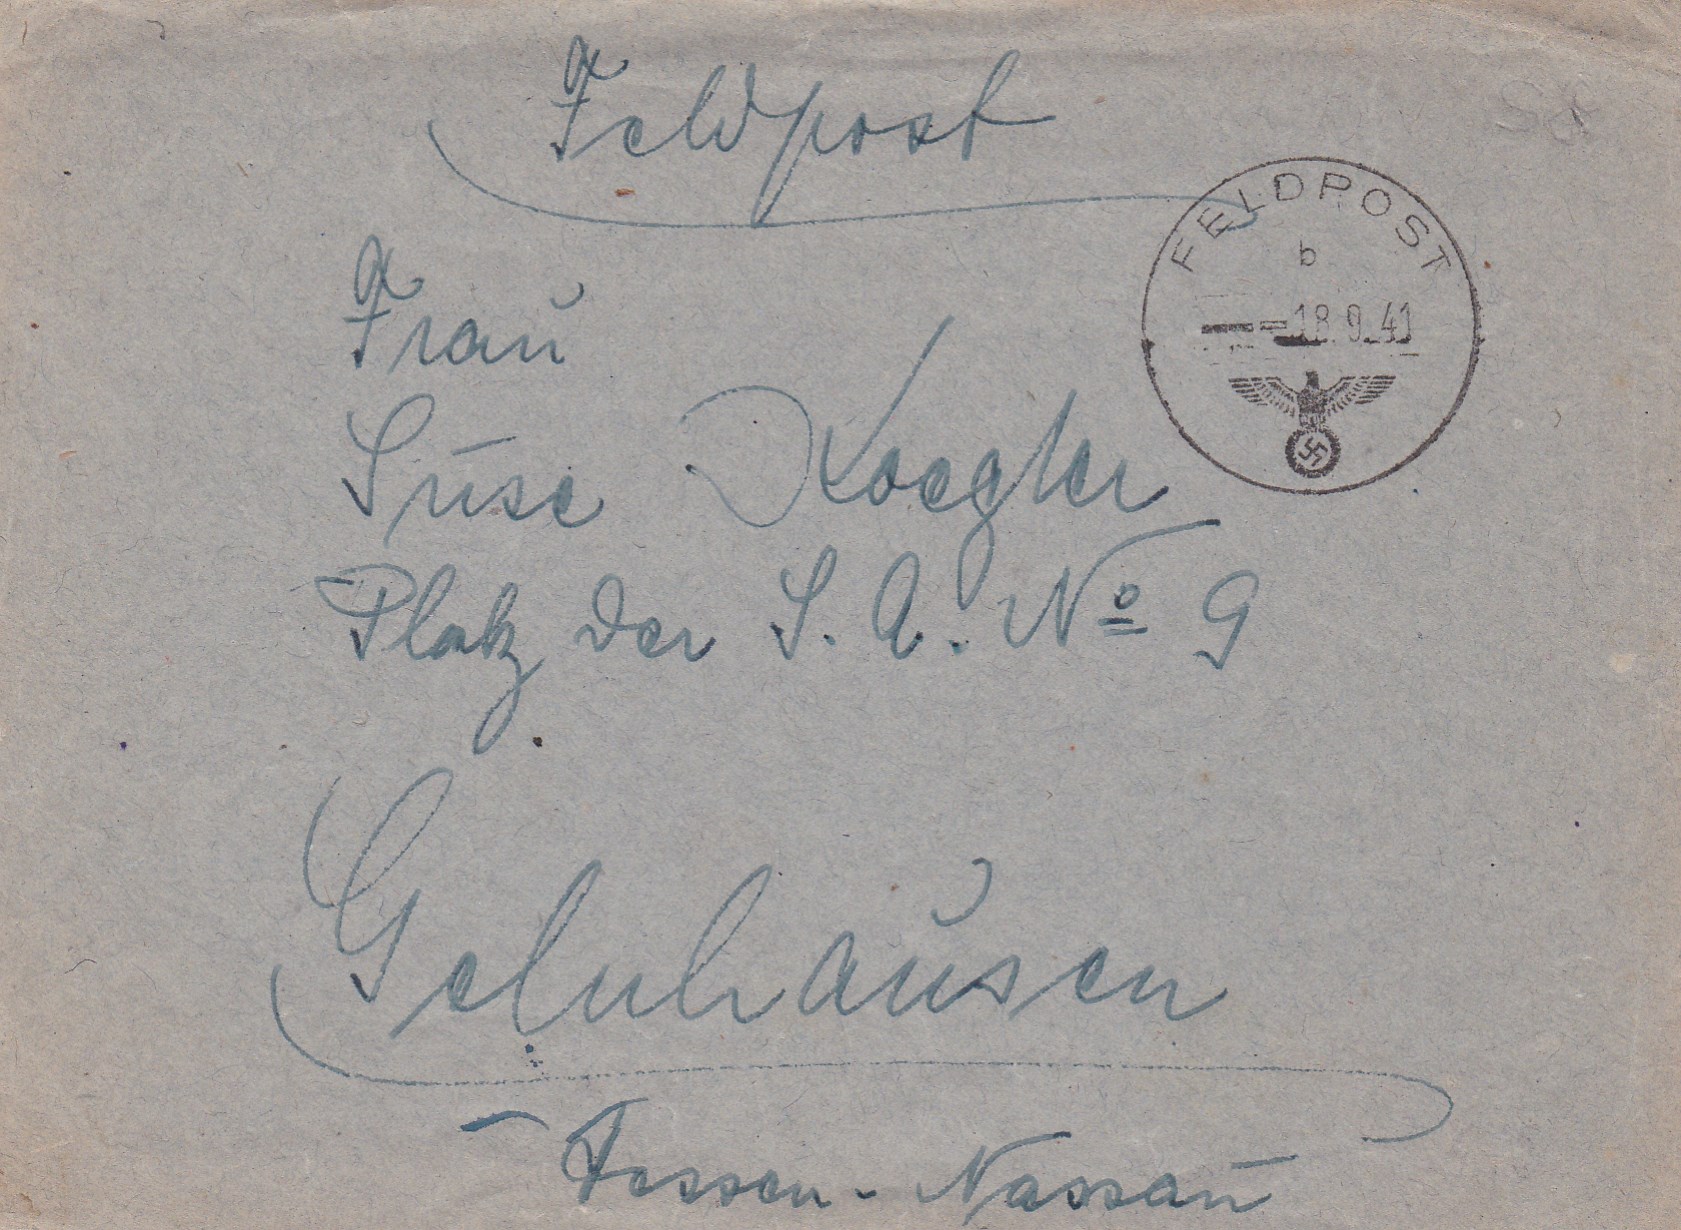 Feldpost
FELDPOST
b
18.9.41
Frau
Suse Koegler
Platz der S. A. Nº 9
Gelnhausen
Hessen-Nassau